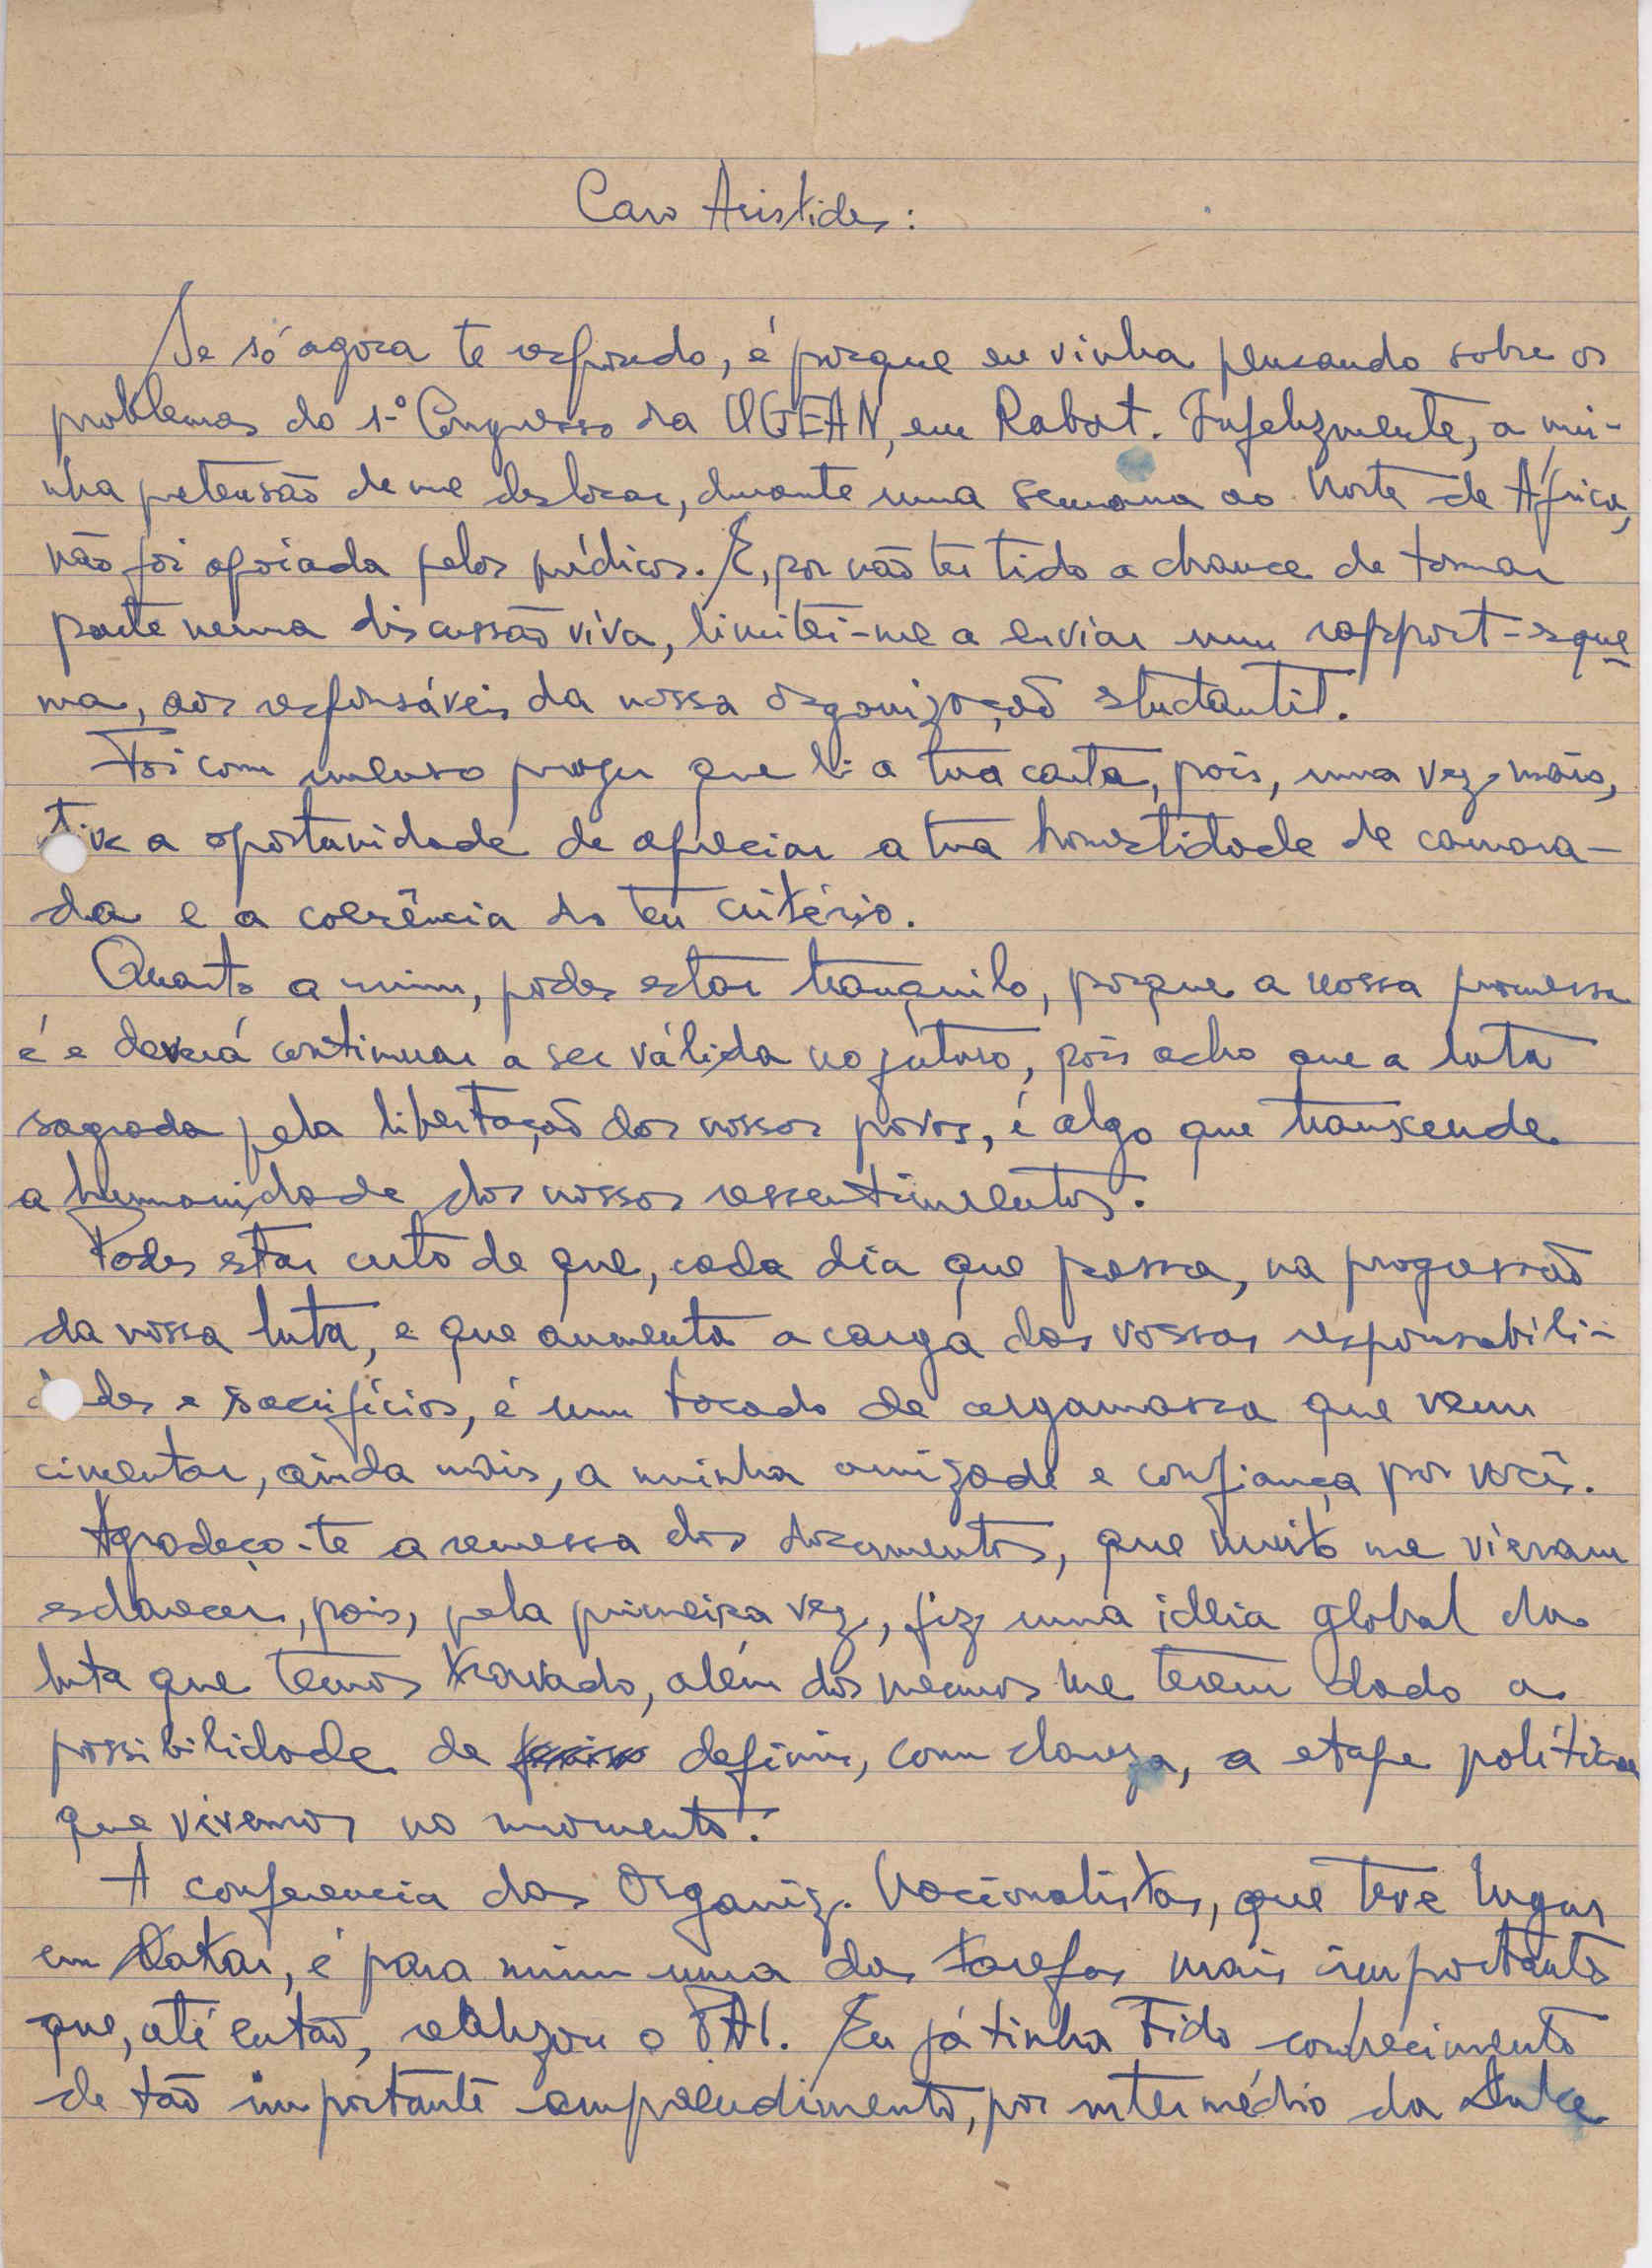 Caro Aristides:
Se só agora te respondo, é porque eu vinha pensando sobre os
problemas do 1.º Congresso da UGEAN, em Rabat. Infelizmente, a mi-
nha pretensão de me deslocar, durante uma semana ao Norte de África,
não foi apoiada pelos médicos. E, por não ter tido a chance de tomar
parte numa discussão viva, limitei-me a enviar um rapport-esque
ma, aos responsáveis da nossa organização estudantil.
Foi com imenso prazer que li a tua carta, pois, uma vez mais,
tive a oportunidade de apreciar a tua honestidade de camara-
da e a coerência do teu critério.
Quanto a mim, podes estar tranquilo, porque a nossa promessa
é e deverá continuar a ser válida no futuro, pois acho que a luta
sagrada pela libertação dos nossos povos, é algo que transcende
a humanidade dos nossos ressentimentos.
Podes estar certo de que, cada dia que passa, na progressão
da nossa luta, e que aumenta a carga das vossas responsabili-
dades e sacrifícios, é um bocado de argamassa que vem
cimentar, ainda mais, a minha amizade e confiança por vocês.
Agradeço-te a remessa dos documentos, que muito me vieram
esclarecer, pois, pela primeira vez, fiz uma ideia global da
luta que temos travado, além dos mesmos me terem dado a
possibilidade de definir, com clareza, a etape política
que vivemos no momento.
A conferencia das Organiz. Nacionalistas, que teve lugar
em Dakar, é para mim uma das tarefas mais importantes
que, até então, realizou o PAI. Eu já tinha tido conhecimento
de tão importante empreendimento, por intermédio da Dulce